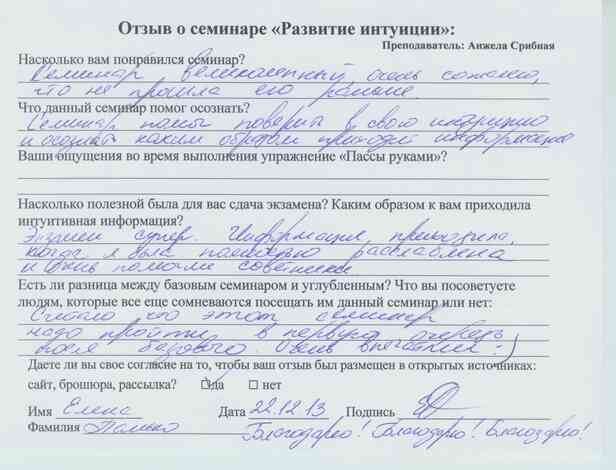 Отзыв о семинаре «Развитие интуиции»:
Преподаватель: Анжела Срибная
Насколько вам понравился семинар?
Семинар великолепный, очень сожалею,
что не прошла его раньше.
Что данный семинар помог осознать?
Семинар помог поверить в свою интуицию
и осознать каким образом приходит информация
Ваши ощущения во время выполнения упражнение «Пассы руками»?
Насколько полезной была для вас сдача экзамена? Каким образом к вам приходила
интуитивная информация?
Экзамен супер. Информация приходила,
когда я была полностью расслаблена
и очень помогли советники
Есть ли разница между базовым семинаром и углубленным? Что вы посоветуете
людям, которые все еще сомневаются посещать им данный семинар или нет:
что этот семинар
надо пройти в первую очередь
после базового. Очень
Даете ли вы свое согласие на то, чтобы ваш отзыв был размещен в открытых источниках:
сайт, брошюра, рассылка? да нет
Имя Елена Дата 22.12.13 Подпись
Фамилия Благодарю! Благодарю! Благодарю!